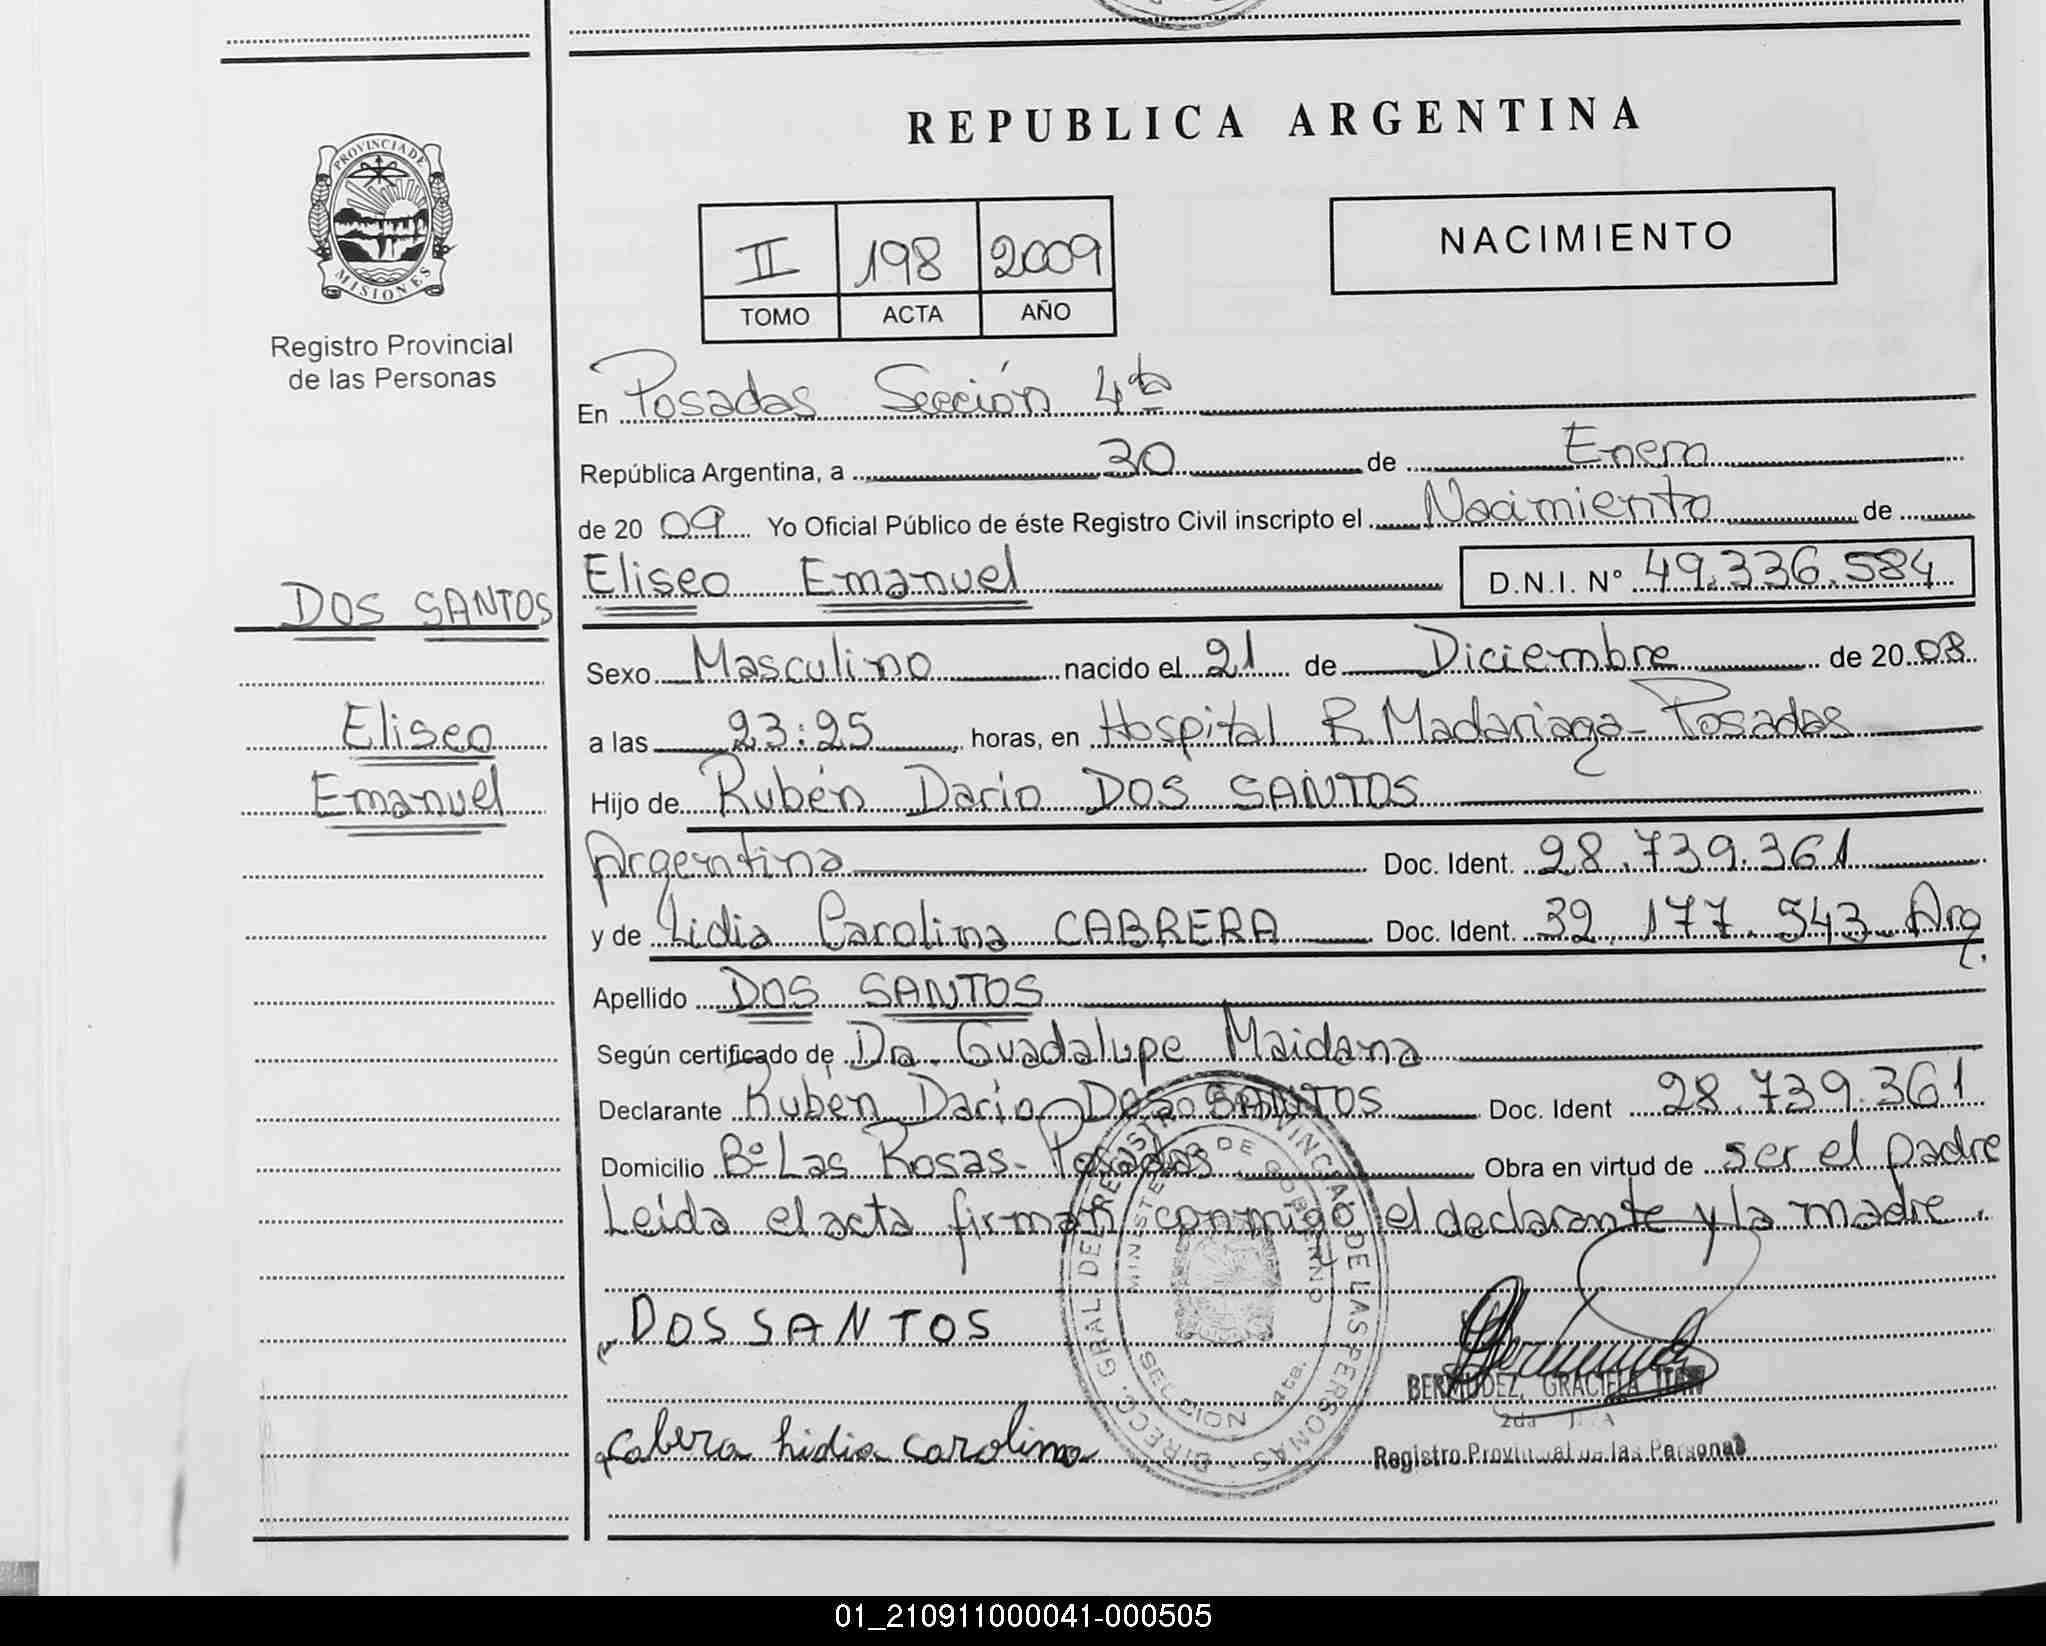 REPUBLICA ARGENTINA
PROVINCIA DE
MISIONES
Registro Provincial
de las Personas
II 198 2009
TOMO ACTA AÑO
NACIMIENTO
En Posadas Sección 4ta
República Argentina, a 30 de Enero
de 20 09 Yo Oficial Público de éste Registro Civil inscripto el Nacimiento de
DOS SANTOS
Eliseo Emanuel D.N.I. N° 49.336.584
Sexo Masculino nacido el 21 de Diciembre de 20 08
Eliseo
a las 23:25 horas, en Hospital R Madariaga - Posadas
Emanuel
Hijo de Rubén Dario DOS SANTOS
Argentina Doc. Ident. 28.739.361
y de Lidia Carolina CABRERA Doc. Ident. 32.177.543 Arg.
Apellido DOS SANTOS
Según certificado de Dra. Guadalupe Maidana
Declarante Rubén Dario DOS SANTOS Doc. Ident 28.739.361
Domicilio Bº Las Rosas - Posadas Obra en virtud de ser el padre
Leída el acta firman conmigo el declarante y la madre.
DOS SANTOS
cabrera Lidia carolina
DIRECC. GRAL DEL REGISTRO PROVINCIAL DE LAS PERSONAS
MINISTERIO DE GOBIERNO
SECCION 4ta.
BERMUDEZ, GRACIELA
2da
Registro Provincial de las Personas
01_210911000041-000505